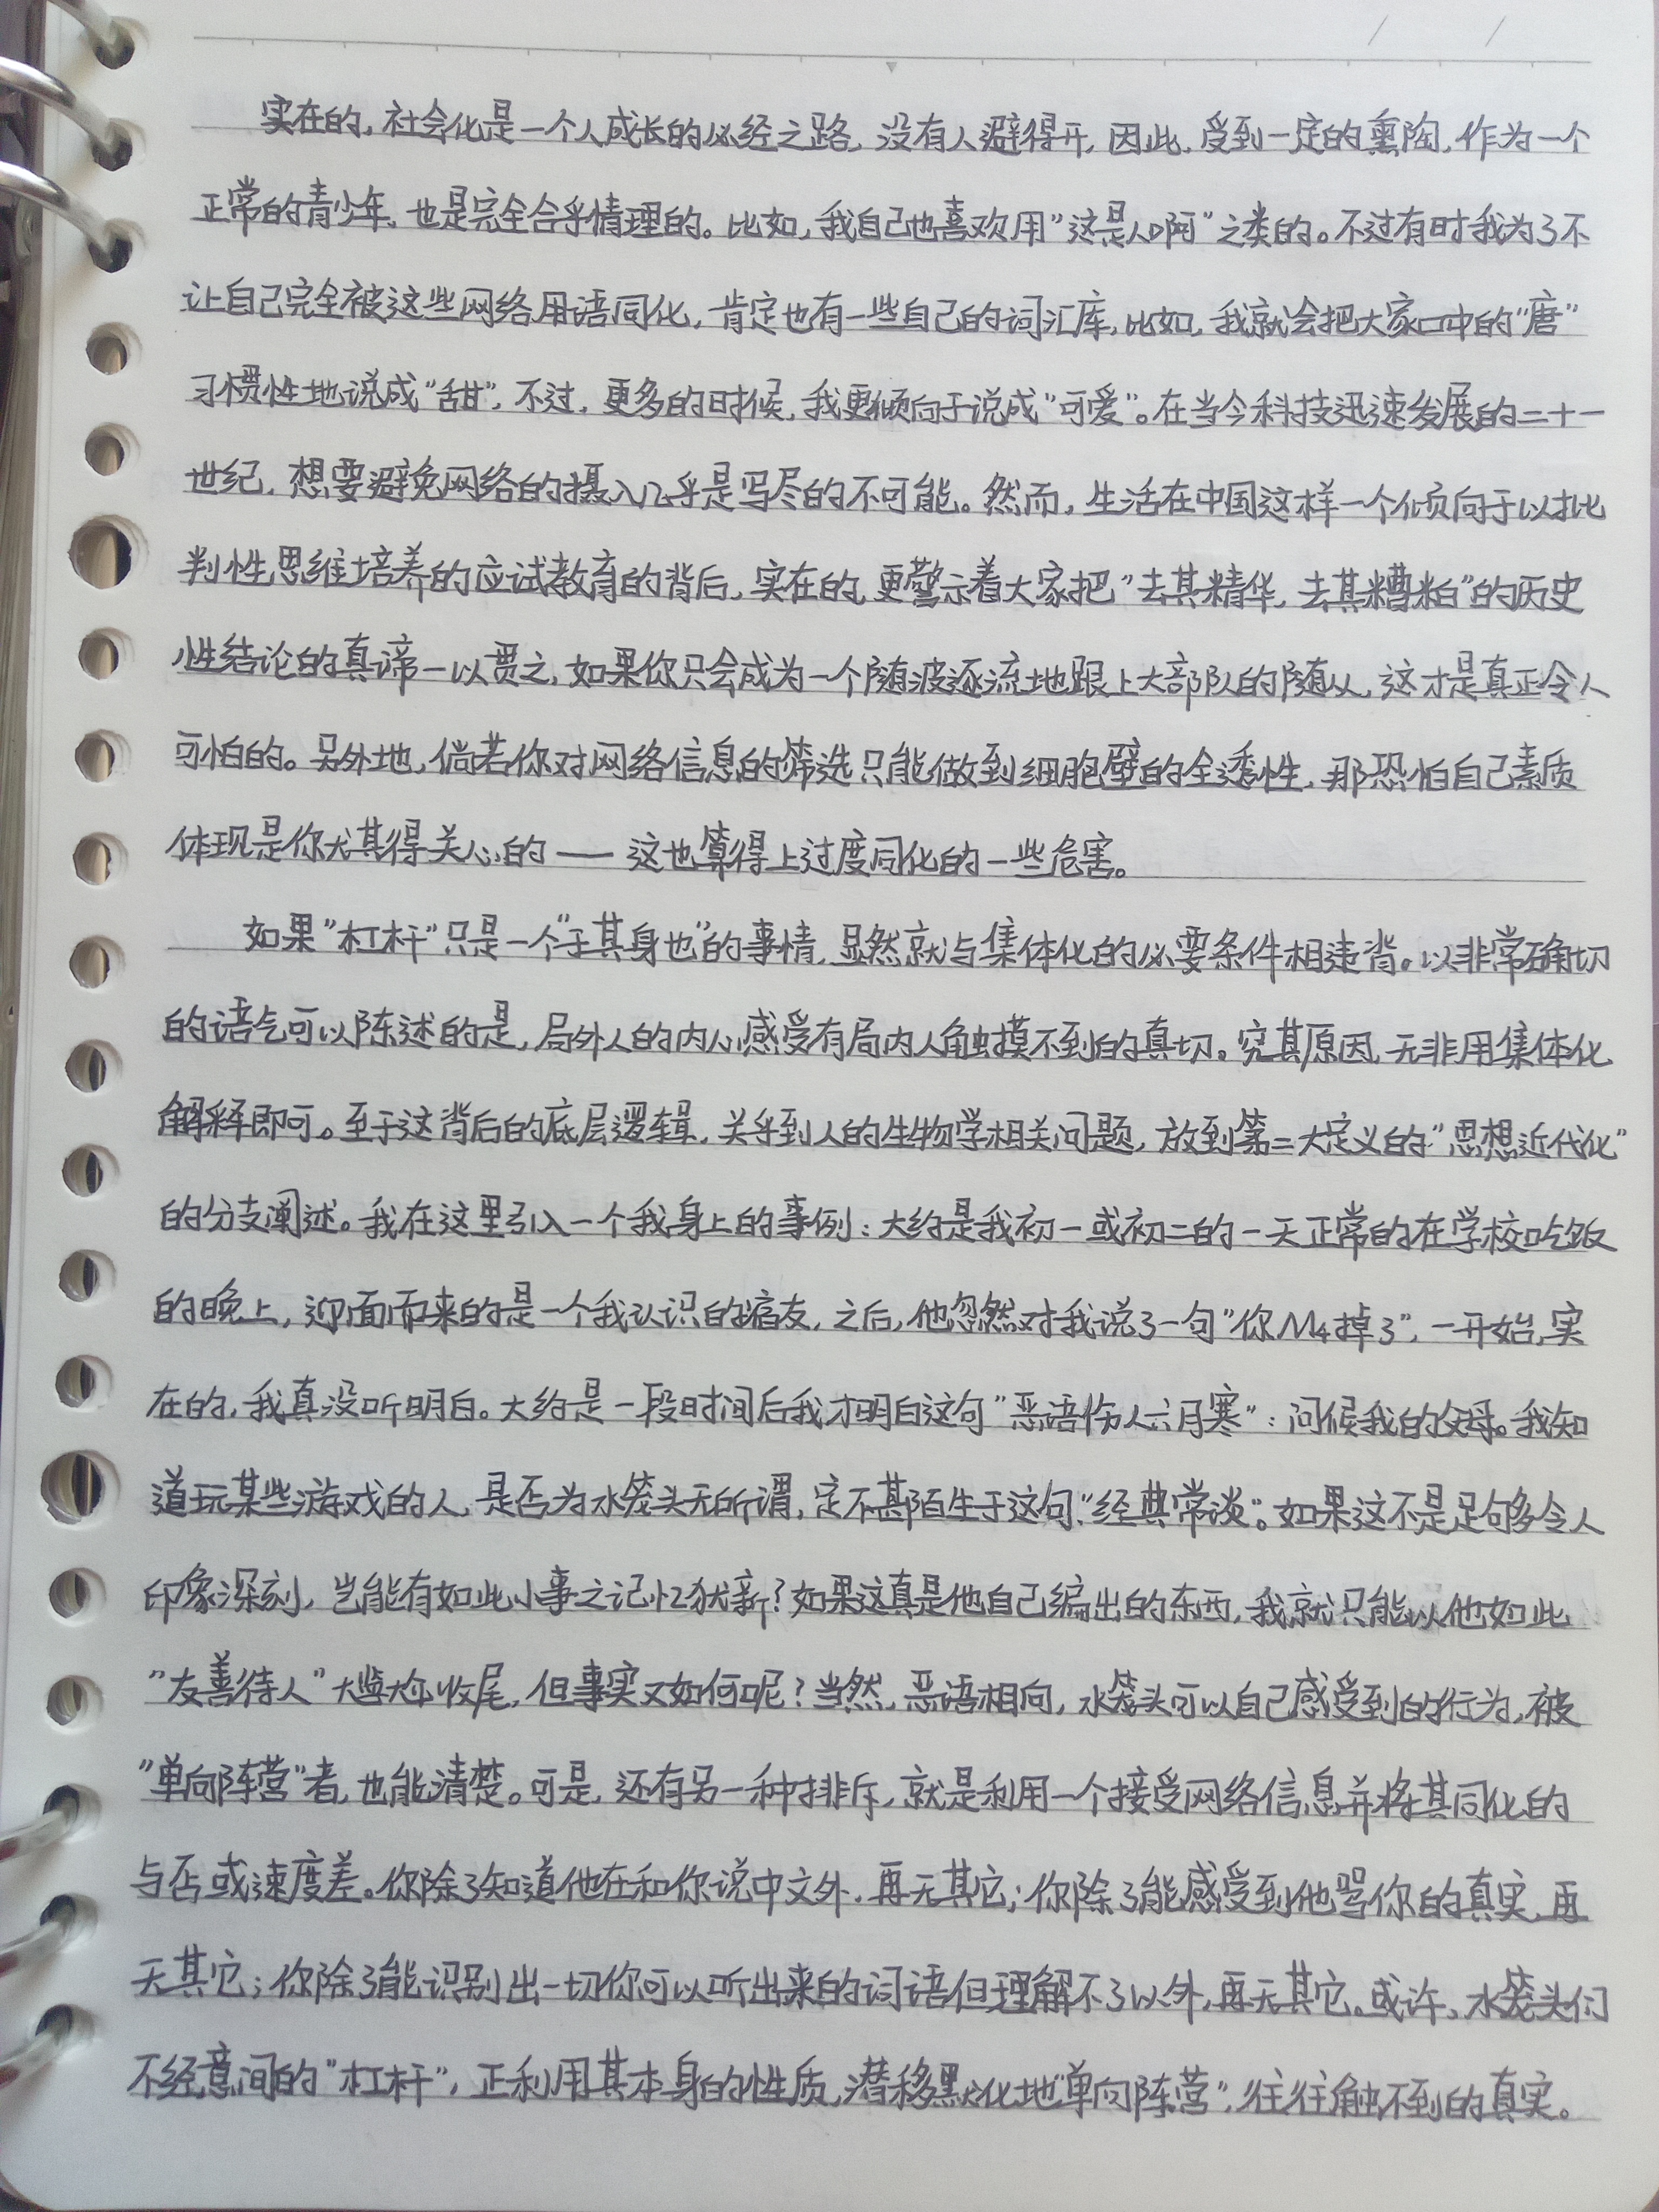 实在的，社会化是一个人成长的必经之路，没有人避得开，因此，受到一定的熏陶，作为一个
正常的青少年，也是完全合乎情理的。比如，我自己也喜欢用“这是人啊”之类的。不过有时我为了不
让自己完全被这些网络用语同化，肯定也有一些自己的词汇库，比如，我就会把大家口中的“唐”
习惯性地说成“甜”，不过，更多的时候，我更倾向于说成“可爱”。在当今科技迅速发展的二十一
世纪，想要避免网络的摄入几乎是写尽的不可能。然而，生活在中国这样一个倾向于以批
判性思维培养的应试教育的背后，实在的，更警示着大家把“去其精华，去其糟粕”的历史
性结论的真谛一以贯之，如果你只会成为一个随波逐流地跟上大部队的随从，这才是真正令人
可怕的。另外地，倘若你对网络信息的筛选只能做到细胞壁的全透性，那恐怕自己素质
体现是你尤其得关心的——这也算得上过度同化的一些危害。
如果“杠杆”只是一个“于其身也”的事情，显然就与集体化的必要条件相违背。以非常确切
的语气可以陈述的是，局外人的内心感受有局内人触摸不到的真切。究其原因，无非用集体化
解释即可。至于这背后的底层逻辑，关乎到人的生物学相关问题，放到第二大定义的“思想近代化”
的分支阐述。我在这里引入一个我身上的事例：大约是我初一或初二的一天正常的在学校吃饭
的晚上，迎面而来的是一个我认识的宿友，之后，他忽然对我说了一句“你M4掉了”，一开始，实
在的，我真没听明白。大约是一段时间后我才明白这句“恶语伤人六月寒”：问候我的父母。我知
道玩某些游戏的人，是否为水笼头无所谓，定不甚陌生于这句“经典常谈”。如果这不是足够多令人
印象深刻，岂能有如此小事之记忆犹新？如果这真是他自己编出的东西，我就只能以他如此
“友善待人”尴尬收尾，但事实又如何呢？当然，恶语相向，水笼头可以自己感受到的行为，被
“单向阵营”者，也能清楚。可是，还有另一种排斥，就是利用一个接受网络信息并将其同化的
与否或速度差。你除了知道他在和你说中文外，再无其它；你除了能感受到他骂你的真实，再
无其它；你除了能识别出一切你可以听出来的词语但理解不了以外，再无其它。或许，水笼头们
不经意间的“杠杆”，正利用其本身的性质，潜移默化地“单向阵营”，往往触不到的真实。